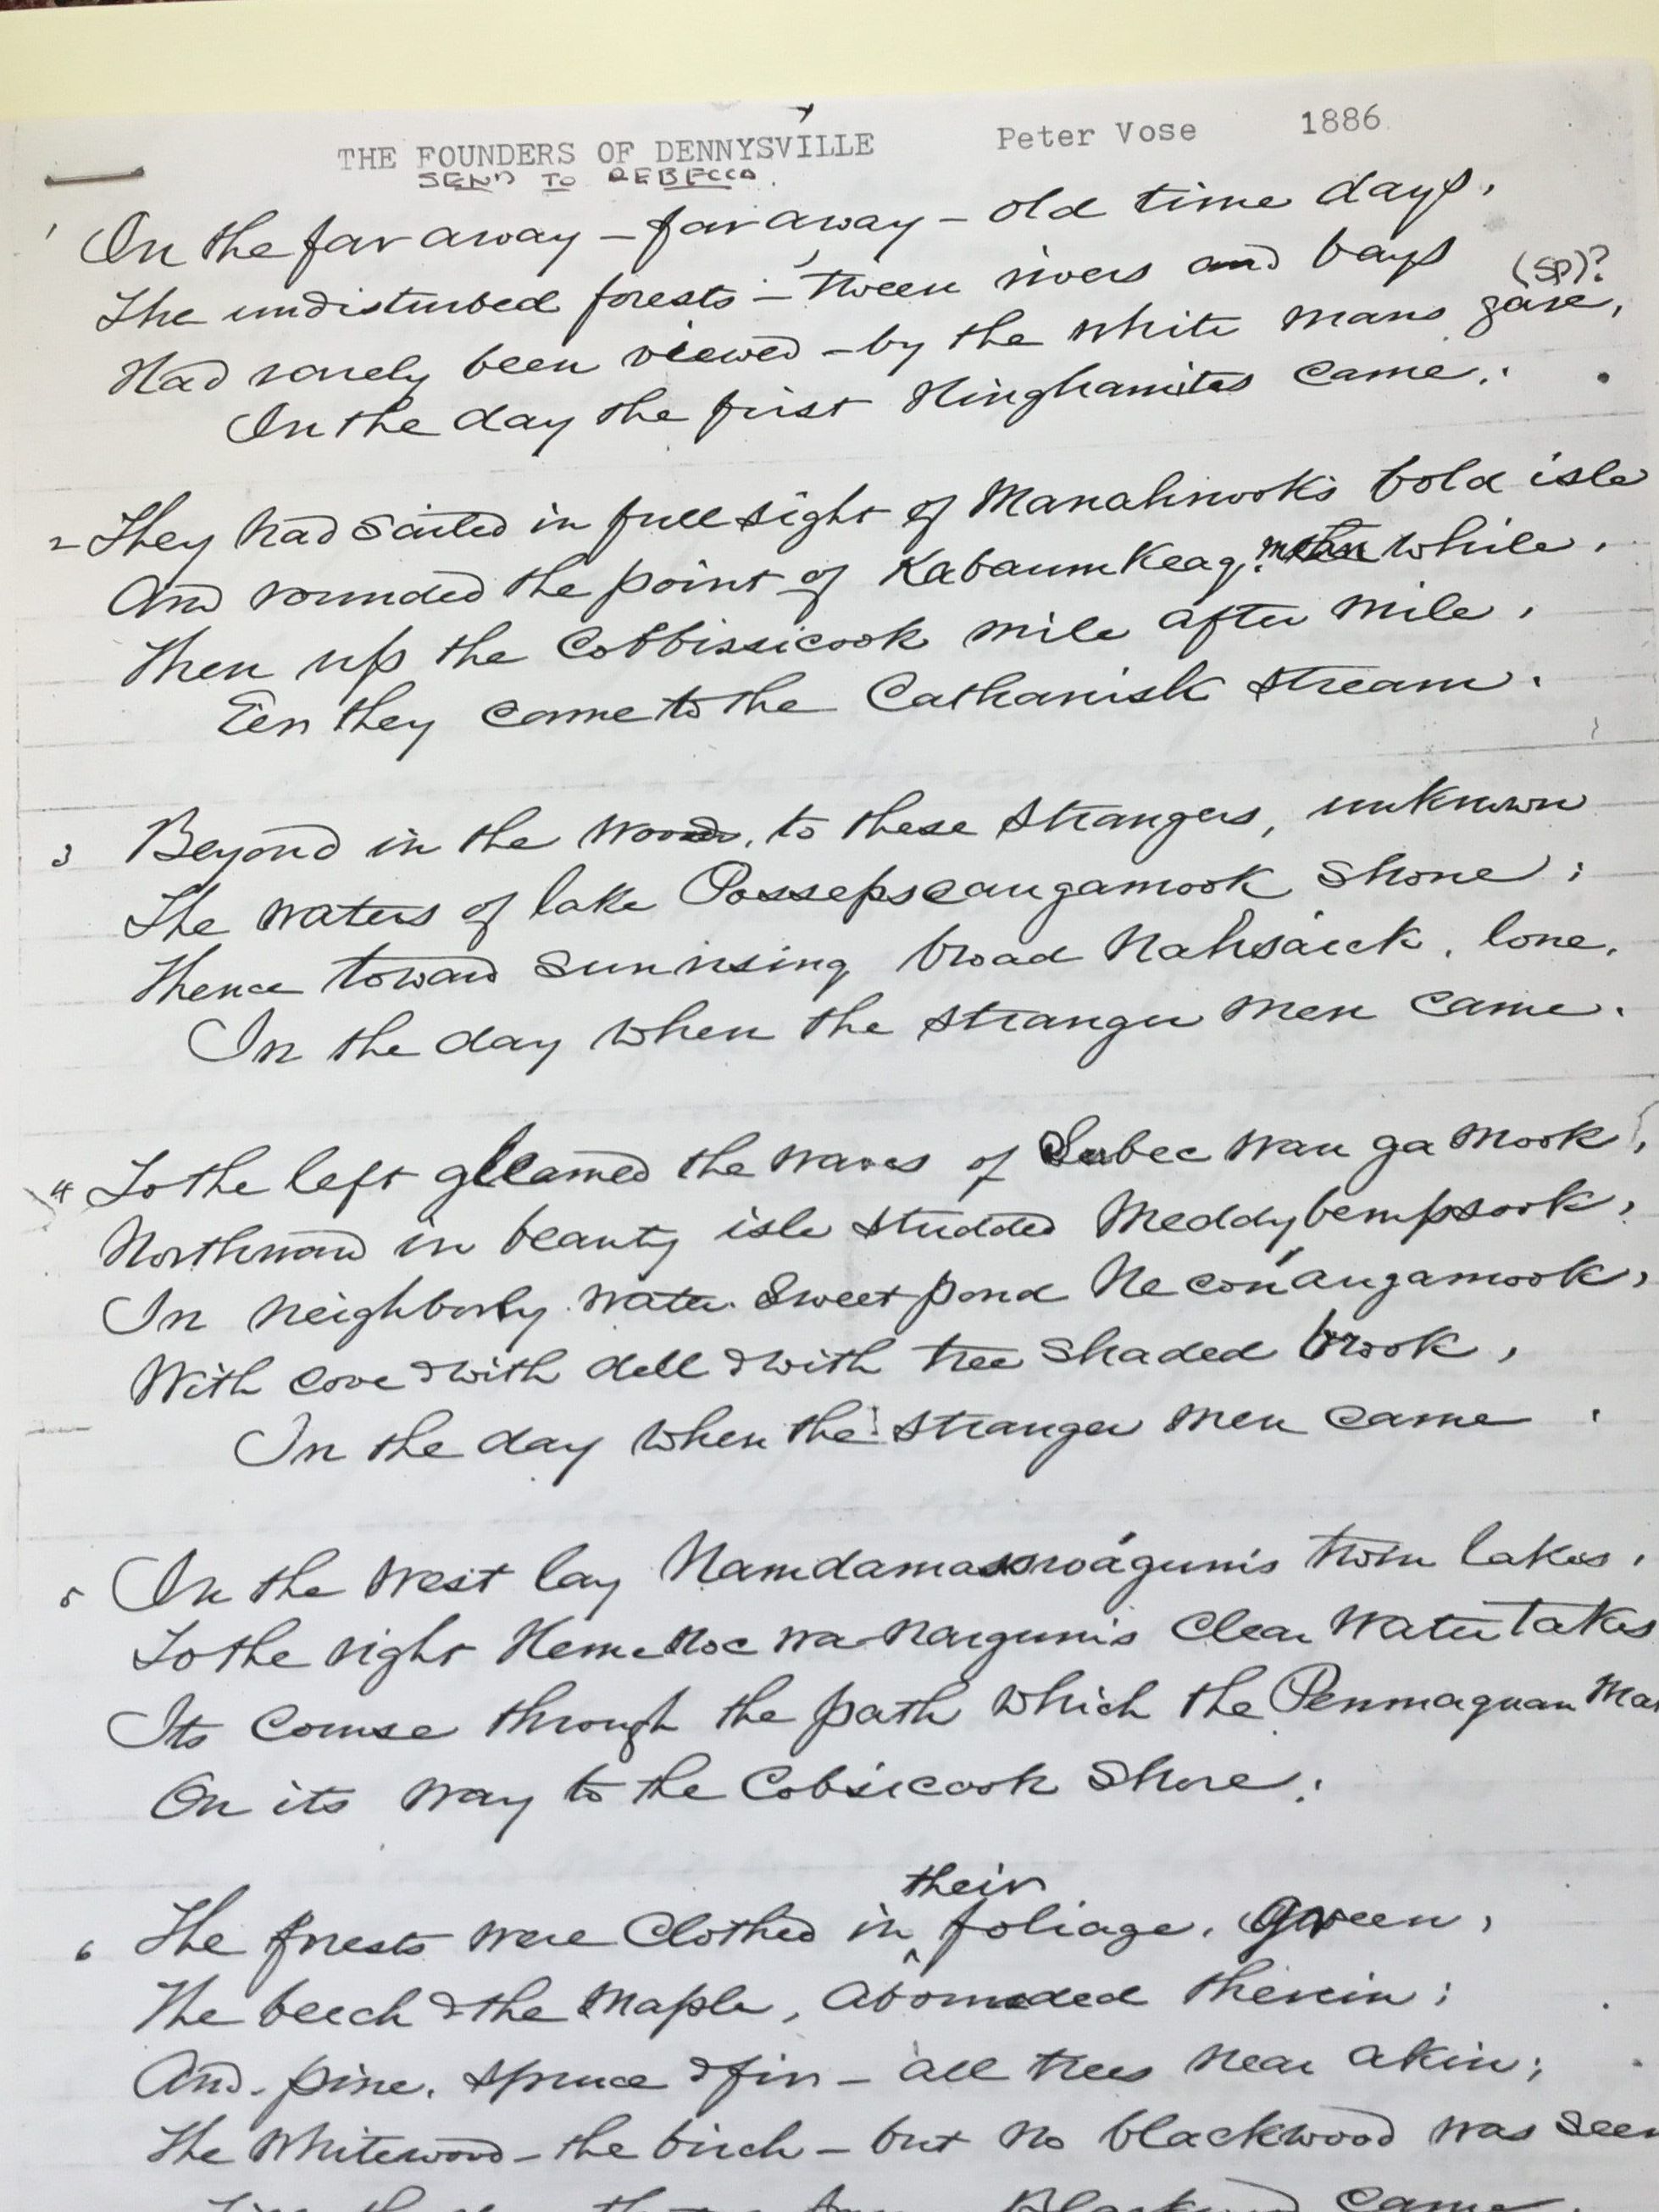 THE FOUNDERS OF DENNYSVILLE Peter Vose 1886
SEND TO REBECCA.
1 In the far away – far away – old time days,
The undisturbed forests – 'tween rivers and bays (SP)?
Had rarely been viewed – by the white mans gase,
In the day the first Hinghamites came.
2 They had sailed in full sight of Manahnook's bold isle
And rounded the point of Kabaumkeag, while,
Then up the Cobbissicook mile after mile,
Een they came to the Cathanisk stream.
3 Beyond in the woods, to these strangers, unknown
The waters of lake Possepscaugamook shone;
Thence toward sunrising broad Nahsaick, lone,
In the day when the stranger men came.
4 To the left gleamed the waves of Subec wau ga mook,
Northward in beauty isle studded Meddybempsook,
In neighborly water sweet pond Neconaugamook,
With cove & with dell & with tree shaded brook,
In the day when the stranger men came
5 In the West lay twin lakes,
To the right clear water takes
Its course through the path which the Penmaquan
On its way to the Cobsicook Shore.
their
6 The forests were clothed in ^ foliage, green,
The beech & the Maple, abounded therein;
And pine, spruce & fir – all trees near akin;
The Whitewood – the birch – but no blackwood was seen
came.